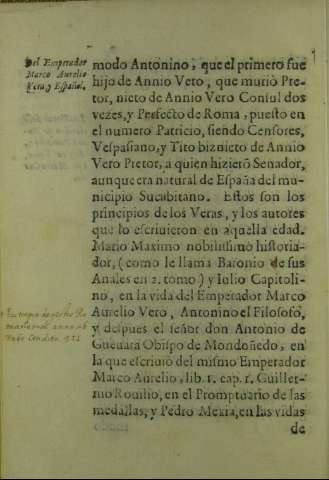 Del Emperador
Marco Aurelio
Vera, y Español.
modo Antonino; que el primero fue
hijo de Annio Vero, que murió Pre-
tor, nieto de Annio Vero Consul dos
vezes, y Perfecto de Roma, puesto en
el numero Patricio, siendo Censores,
Vespasiano, y Tito biznieto de Annio
Vero Pretor, a quien hizierõ Senador,
aunque era natural de España del mu-
nicipio Sucubitano. Estos son los
principios de los Veras, y los autores
que lo escriuieron en aquella edad.
Mario Maximo nobilissimo historia-
dor, (como le llama Baronio de sus
Anales en 2. tomo) y Iulio Capitoli-
no, en la vida del Emperador Marco
Aurelio Vero, Antonino el Filosofo,
y despues el señor don Antonio de
Gueuara Obispo de Mondoñedo, en
la que escriuió del mismo Emperador
Marco Aurelio, lib. 1. cap. 1. Guiller-
mo Rouilio, en el Promptuario de las
medallas, y Pedro Mexia, en las vidas
de